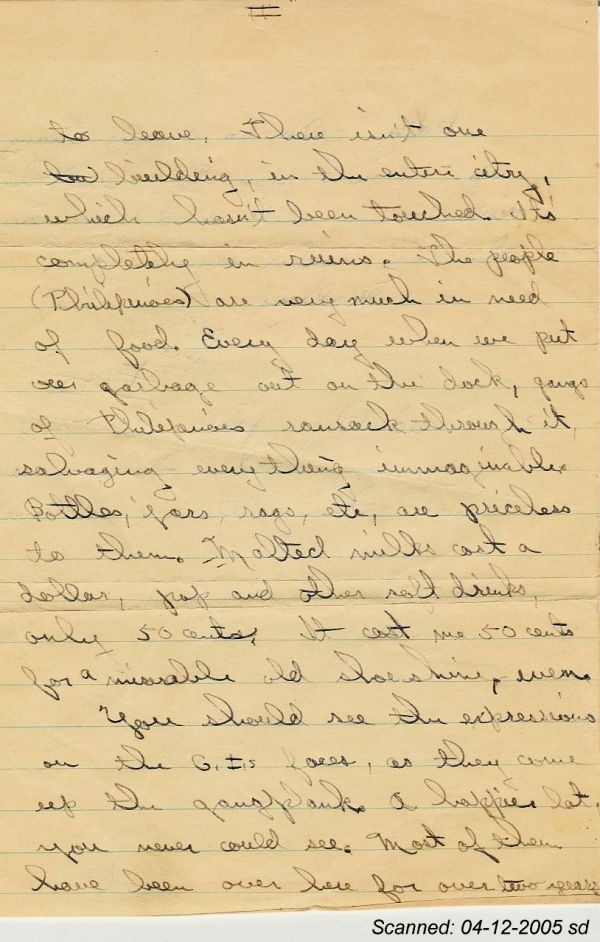 to leave. There isn't one
building, in the entire city,
which hasn't been touched. It's
completely in ruins. The people
(Philipinoes) are very much in need
of food. Every day when we put
our garbage out on the dock, gangs
of Philipinoes ransack through it,
salvaging everything immaginable.
Bottles, jars, rags, etc, are priceless
to them. Malted milks cost a
dollar, pop and other soft drinks,
only 50 cents. It cost me 50 cents
for a miserable old shoe shine, even.
You should see the expressions
on the G.I.s faces, as they come
up the gangplank. A happier lot,
you never could see. Most of them
have been over here for over two years
Scanned: 04-12-2005 sd